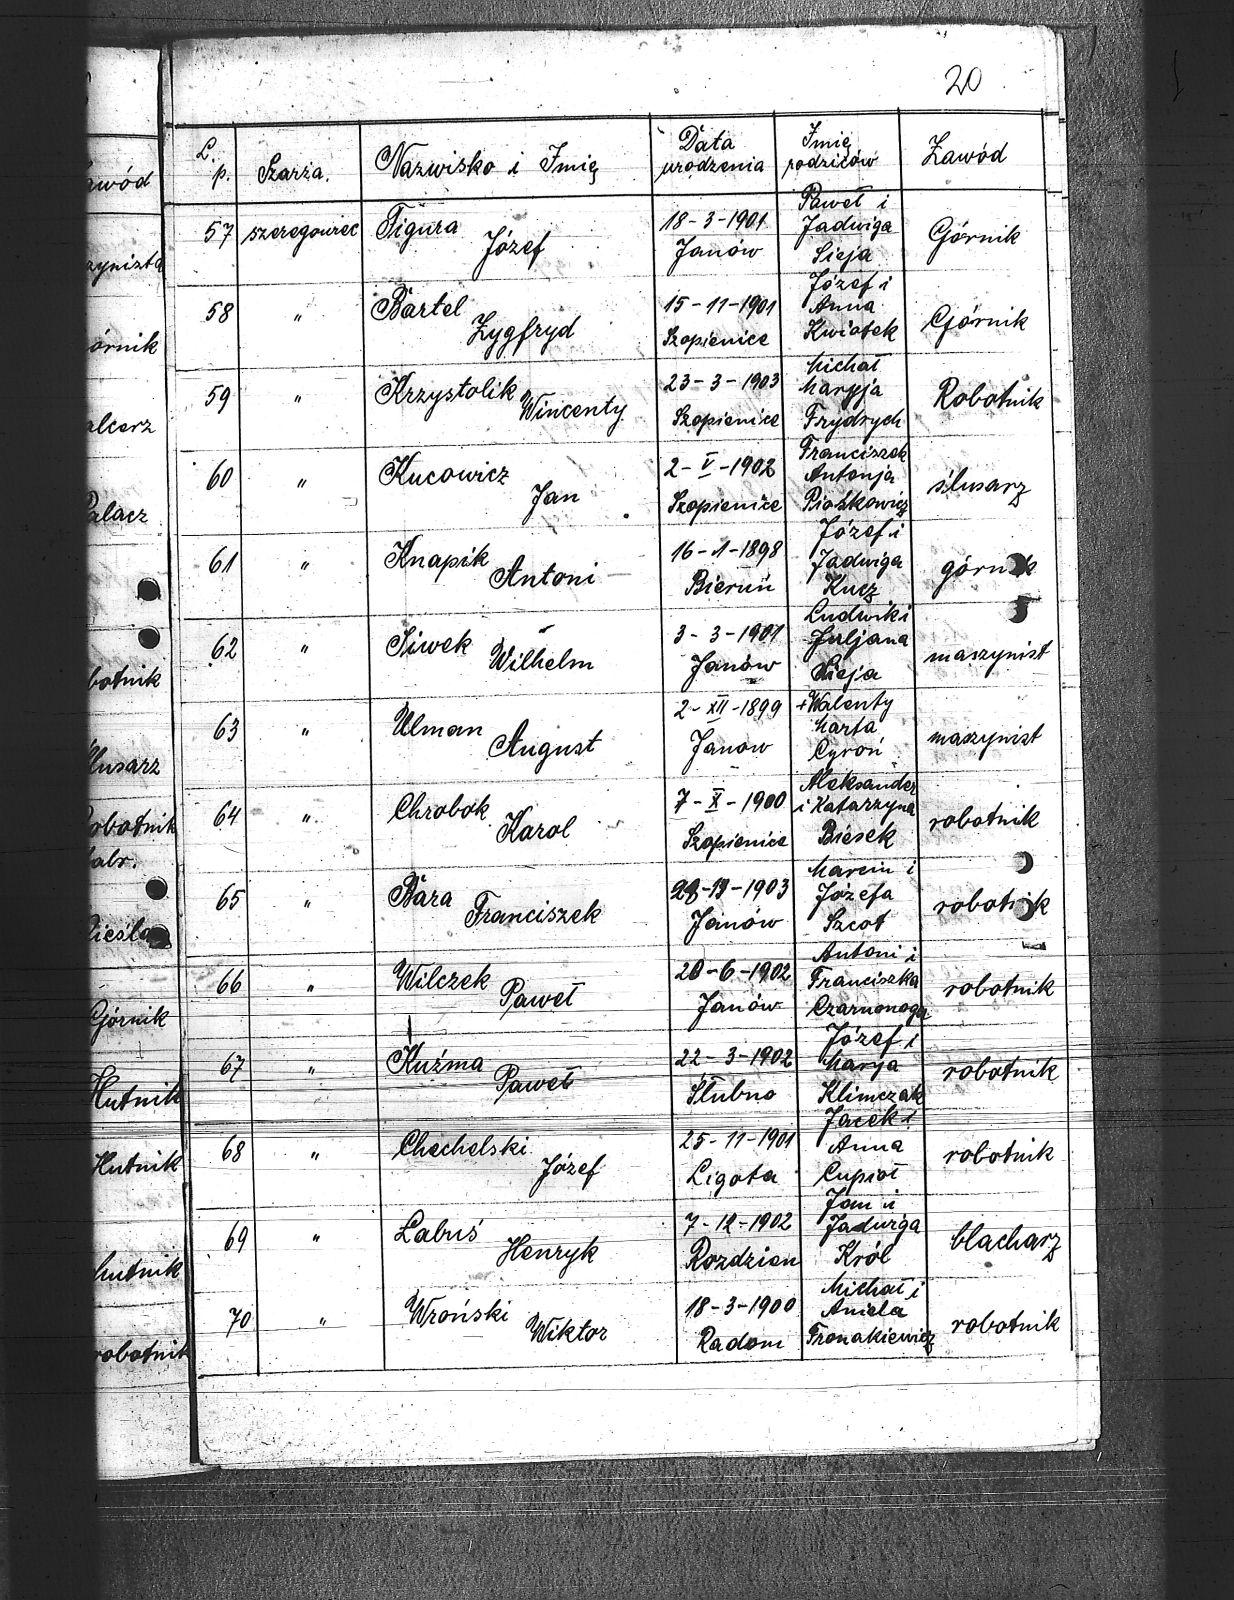 20
L. p. Szarża. Nazwisko i Imię Data urodzenia Imię rodziców Zawód
57 szeregowiec Figura Józef 18-3-1901 Janów Paweł i Jadwiga Sieja Górnik
58 " Bartel Zygfryd 15-11-1901 Szopienice Józef i Anna Kwiotek Górnik
59 " Krzystolik Wincenty 23-3-1903 Szopienice Michał Maryja Frydrych Robotnik
60 " Kucowicz Jan 2-V-1902 Szopienice Franciszek Antonja Piośkowicz ślusarz
61 " Knapik Antoni 16-1-1898 Bieruń Józef i Jadwiga Kucz górnik
62 " Siwek Wilhelm 3-3-1901 Janów Ludwik i Juljana Sieja maszynist
63 " Ulman August 2-XII-1899 Janow +Walenty Marta Cyroń maszynist
64 " Chrobok Karol 7-X-1900 Szopienice Aleksander i Katarzyna Biesek robotnik
65 " Bara Franciszek 28-12-1903 Janów Marcin i Józefa Szcot robotnik
66 " Wilczek Paweł 20-6-1902 Janów Antoni i Franciszka Czarnonoga robotnik
67 " Kuźma Paweł 22-3-1902 Słubno Józef i Marya Klimczak robotnik
68 " Chechelski Józef 25-11-1901 Ligota Jacek i Anna Cupioł robotnik
69 " Labuś Henryk 7-12-1902 Rozdzien Jan i Jadwiga Król blacharz
70 " Wroński Wiktor 18-3-1900 Radom Michał i Aniela Fronakiewicz robotnik